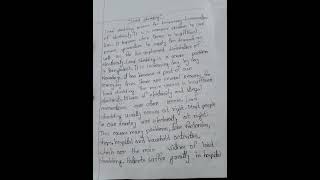 "Load shedding"
Load shedding means for temporary suspension
of electricity. It is a common problem to our
It happens when there is insufficient
power generation to meet the demand as
well as for the unplanned distribution of
electricity. Load shedding is a severe problem
in Bangladesh. It is increasing day by day.
Nowadays, it has become a part of our
everyday life. There are several reasons for
load shedding. The main reason is insufficient
production of electricity and illegal
connections are other reasons. Load
shedding usually occurs at night. Most people
in our country use electricity at night.
This causes many problems. Like factories,
shops, hospital and household activities,
which are the main victims of load
shedding. Patients suffer greatly in hospital